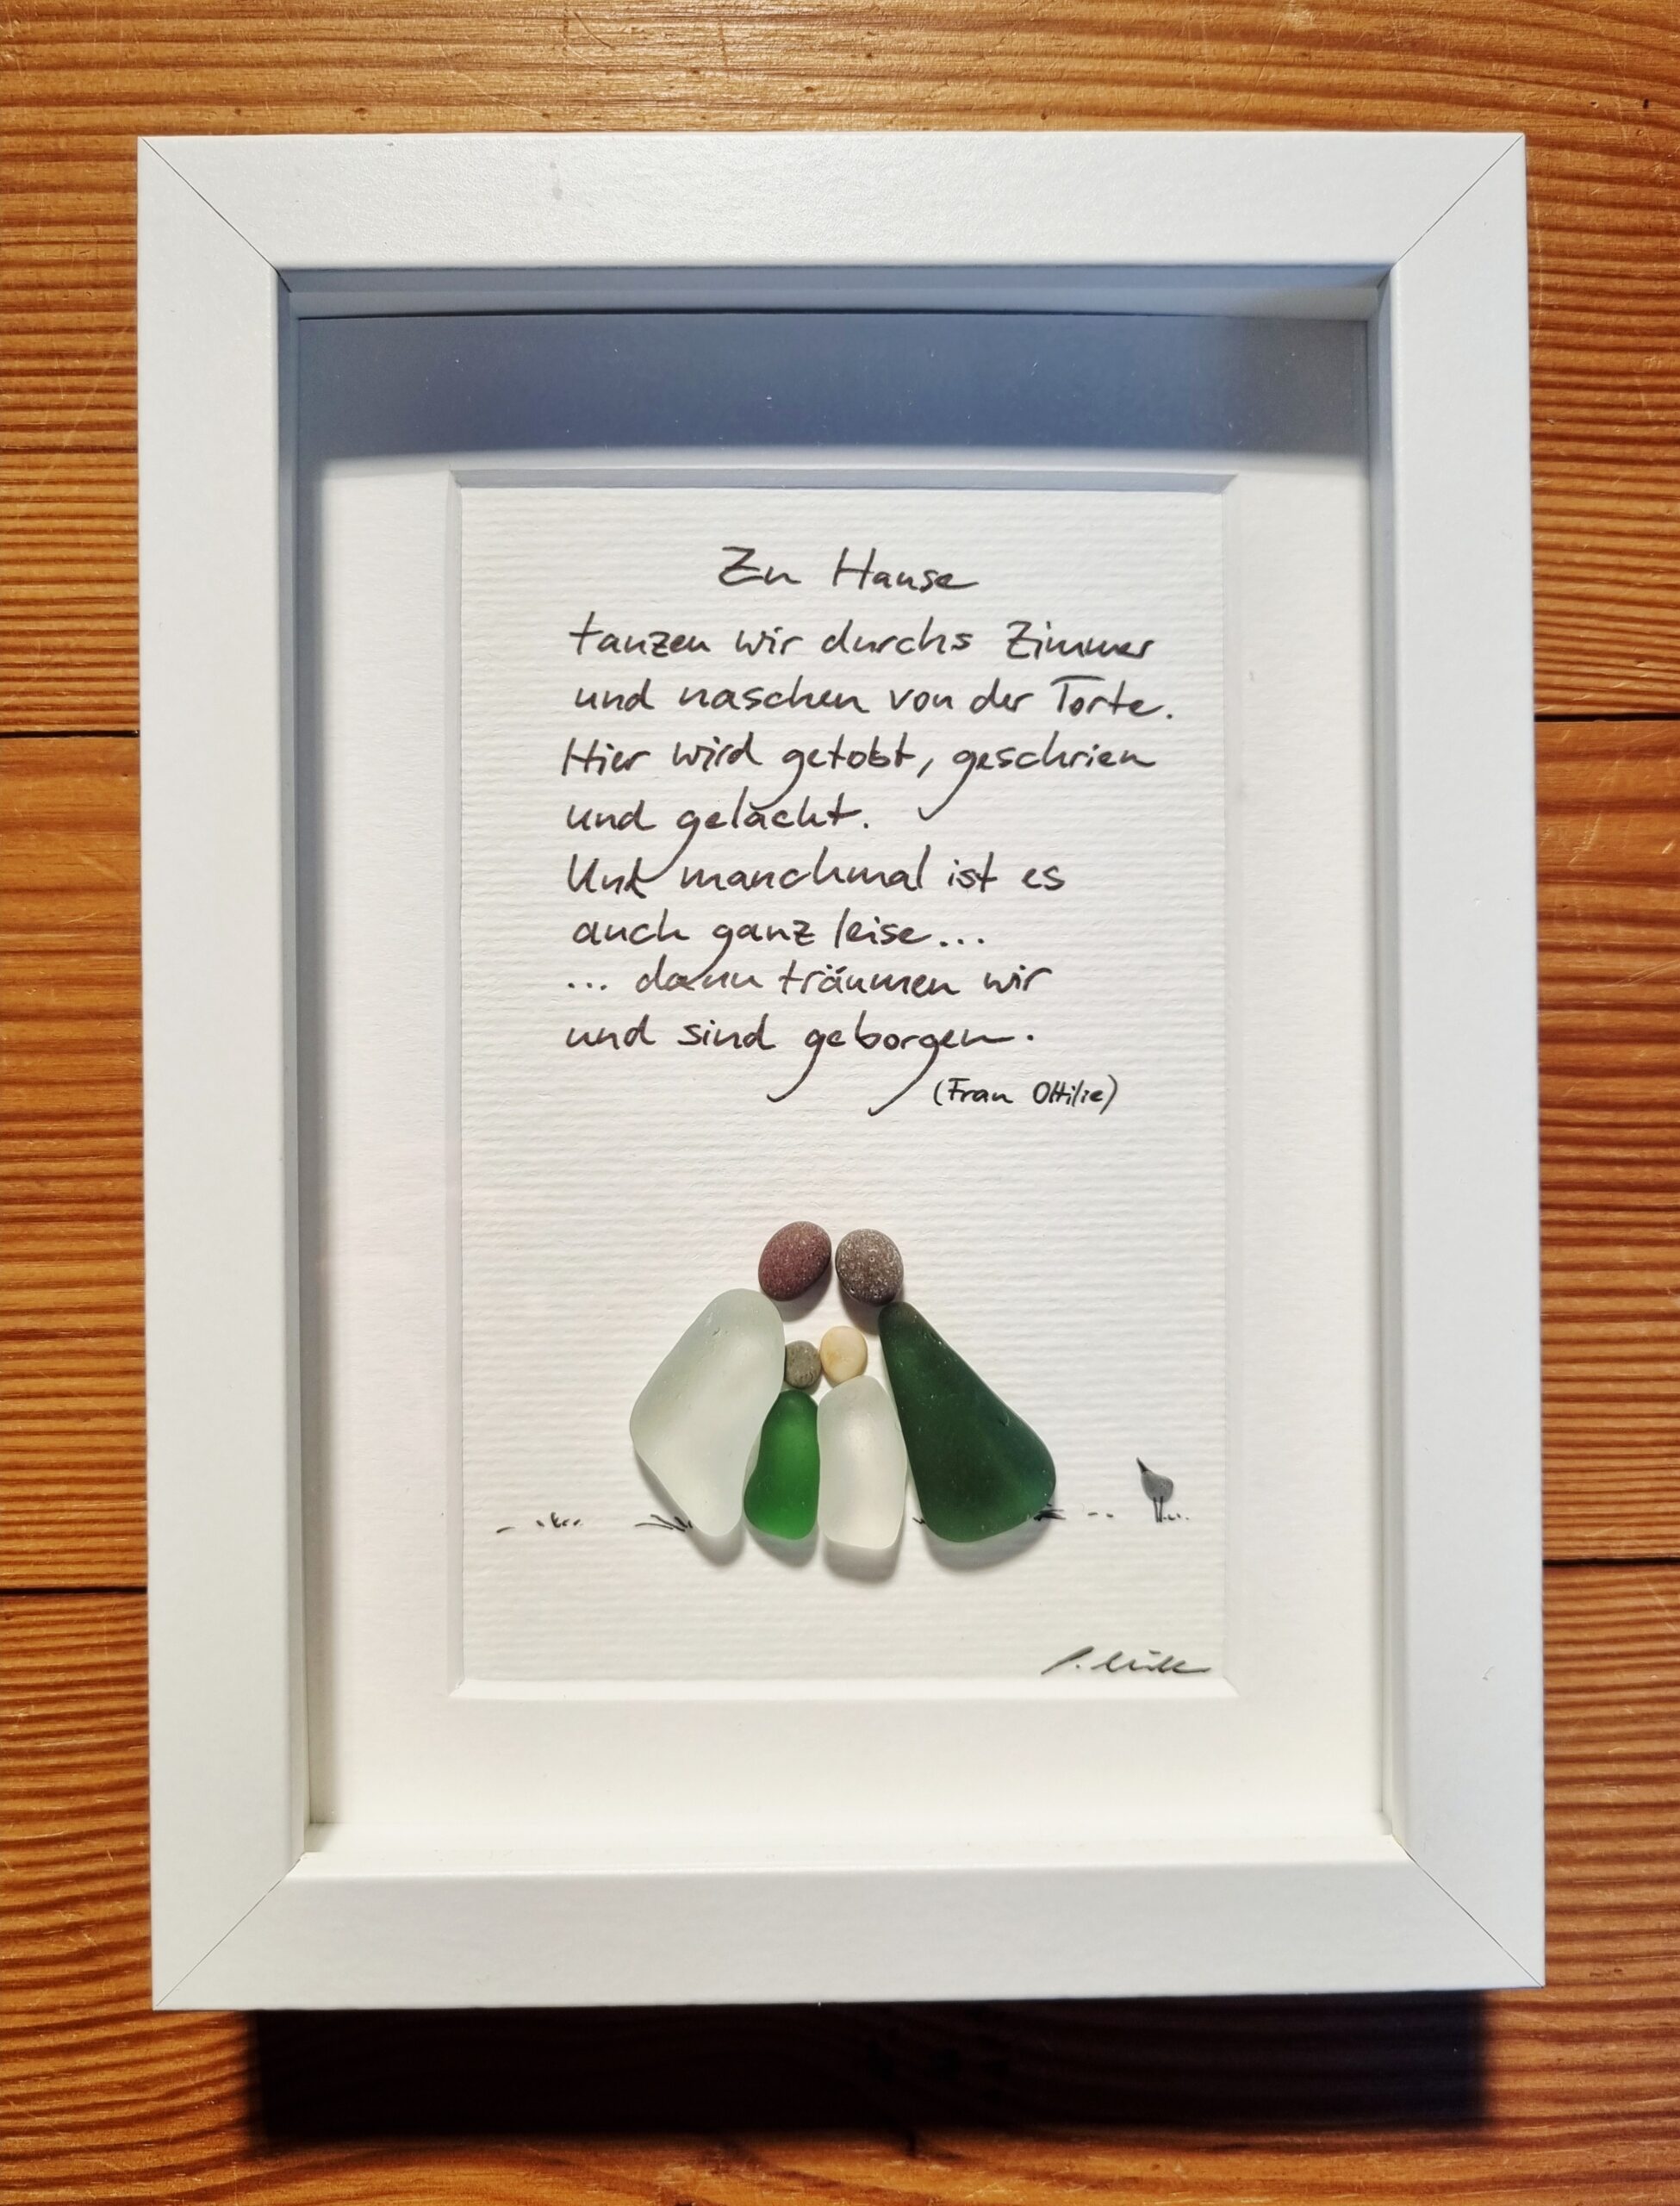 Zu Hause
tanzen wir durchs Zimmer
und naschen von der Torte.
Hier wird getobt, geschrien
und gelacht.
Und manchmal ist es
auch ganz leise...
... dann träumen wir
und sind geborgen.
(Frau Ottilie)